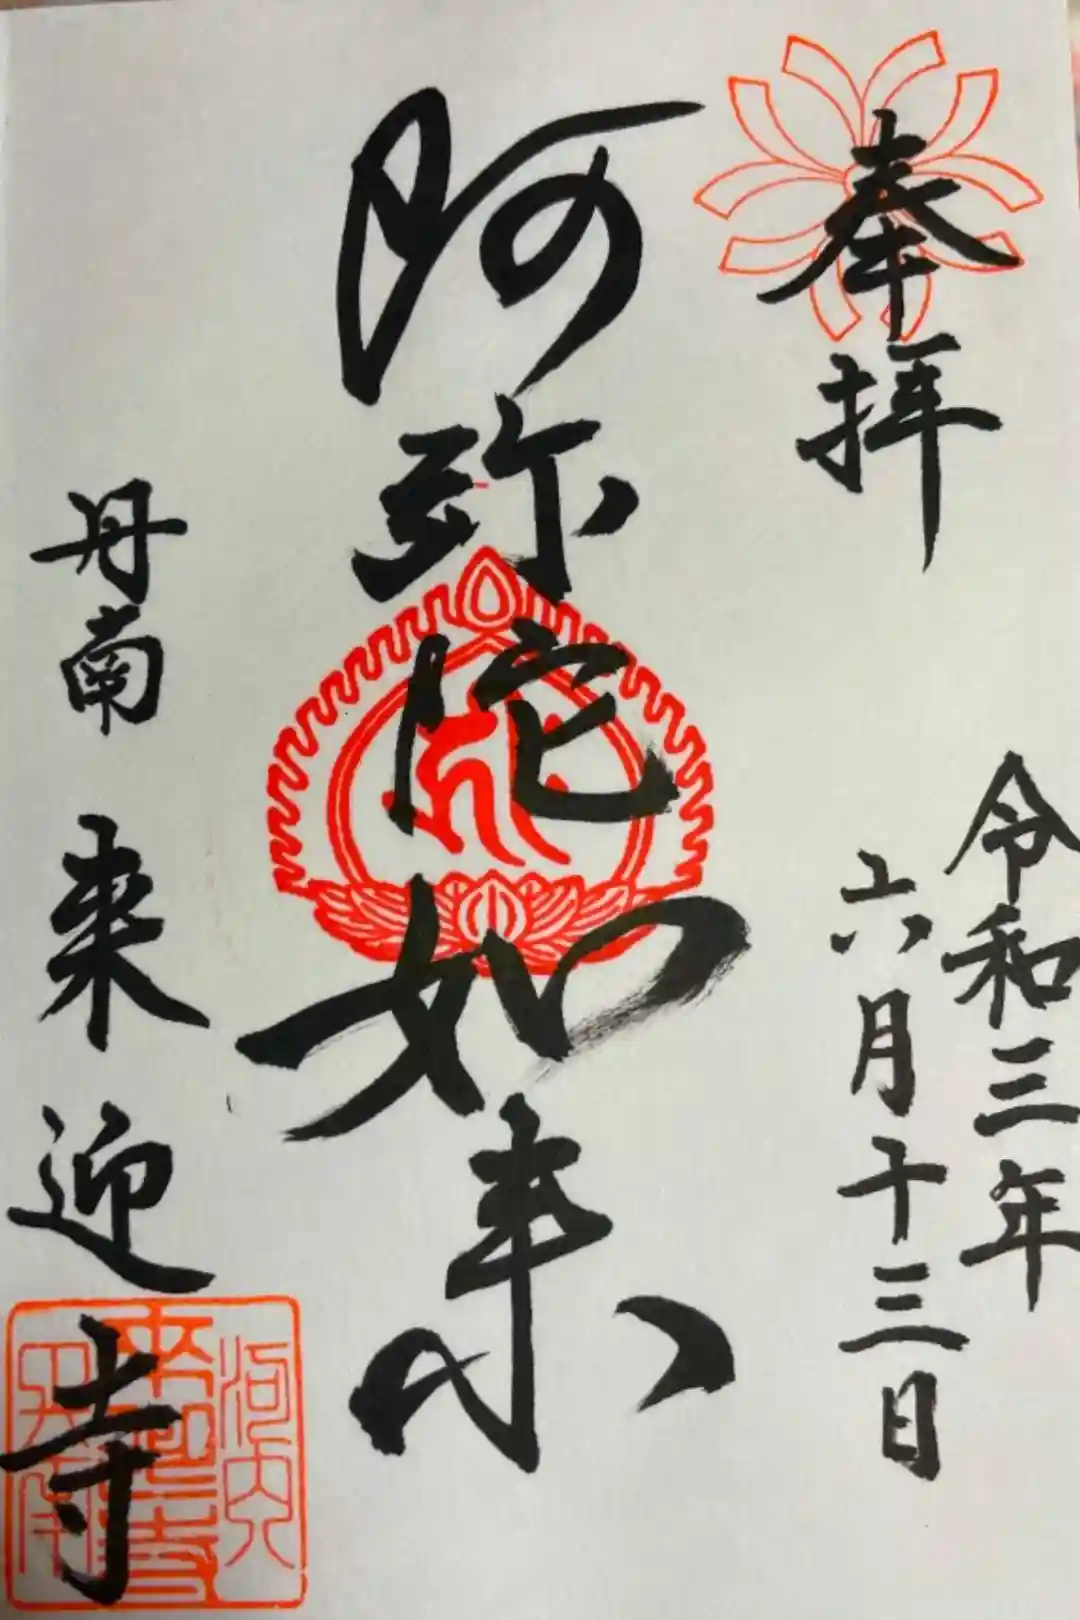 奉拝
令和三年
六月十三日
阿弥陀如来
丹南 来迎寺
河内
来迎寺
丹南